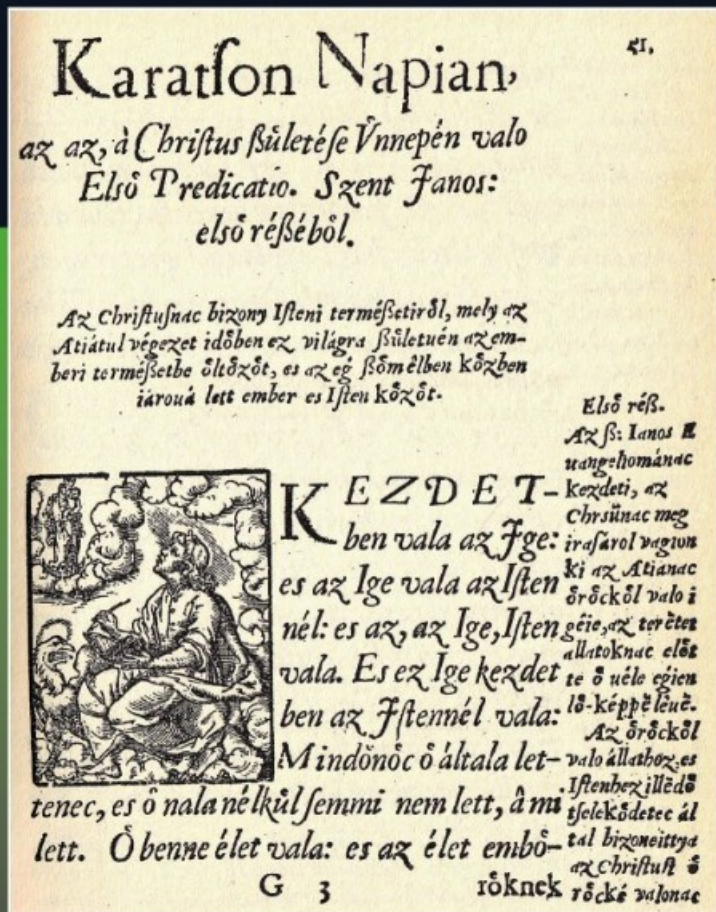 51.
Karatſon Napian,
az az, à Chriſtus ßuͤletéſe Vͤnnepén valo
Elsoͤ Predicatio. Szent Janos:
elsoͤ réßéboͤl.
Az Chriſtuſnac bizony Iſteni terméßetiroͤl, mely az
Atiátul végezet idoͤben ez világra ßuͤletuén az em-
beri terméßetbe oͤltoͤzoͤt, es az eg ßoͤmélben koͤzben
iárouá lett ember es Iſten koͤzoͤt.
KEZDET-
ben vala az Jge:
es az Ige vala az Iſten
nél: es az, az Ige, Iſten
vala. Es ez Ige kezdet
ben az Jſtennél vala:
Mindoͤnoͤc oͤ általa let-
tenec, es oͤ nala nélkuͤl ſemmi nem lett, â mi
lett. Oͤ benne élet vala: es az élet emboͤ-
G 3 roͤknek
Elsoͤ réß.
Az ß: Ianos E
uangeliománac
kezdeti, az
Chrsuͤnac meg
iraſárol vagion
ki az Atianac
oͤroͤckoͤl valo i
géie, az teretet
allatoknac eloͤt
te oͤ uéle egien
loͤ-képpē leuē.
Az oͤroͤckoͤl
valo állathoz, es
Iſtenhez illēdoͤ
tſelekoͤdetec ál
tal bizoneittya
az Chriſtuſt oͤ
roͤcké valonac